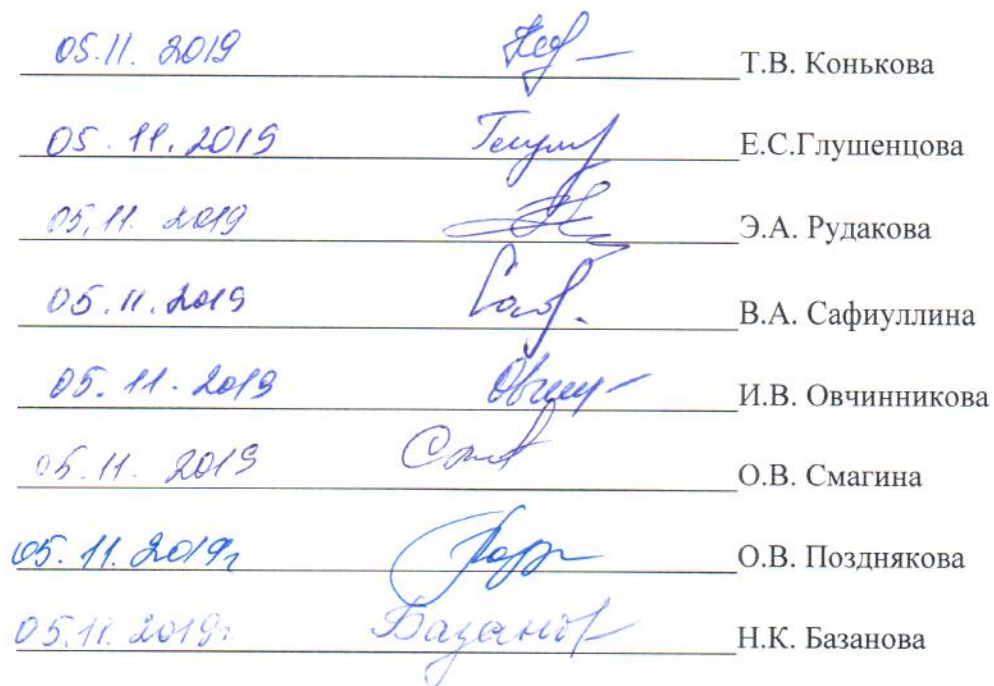 05.11. 2019 Т.В. Конькова
05.11.2019 Е.С.Глушенцова
05.11. 2019 Э.А. Рудакова
05.11.2019 В.А. Сафиуллина
05.11.2019 И.В. Овчинникова
05.11. 2019 О.В. Смагина
05.11.2019г О.В. Позднякова
05.11.2019г. Н.К. Базанова